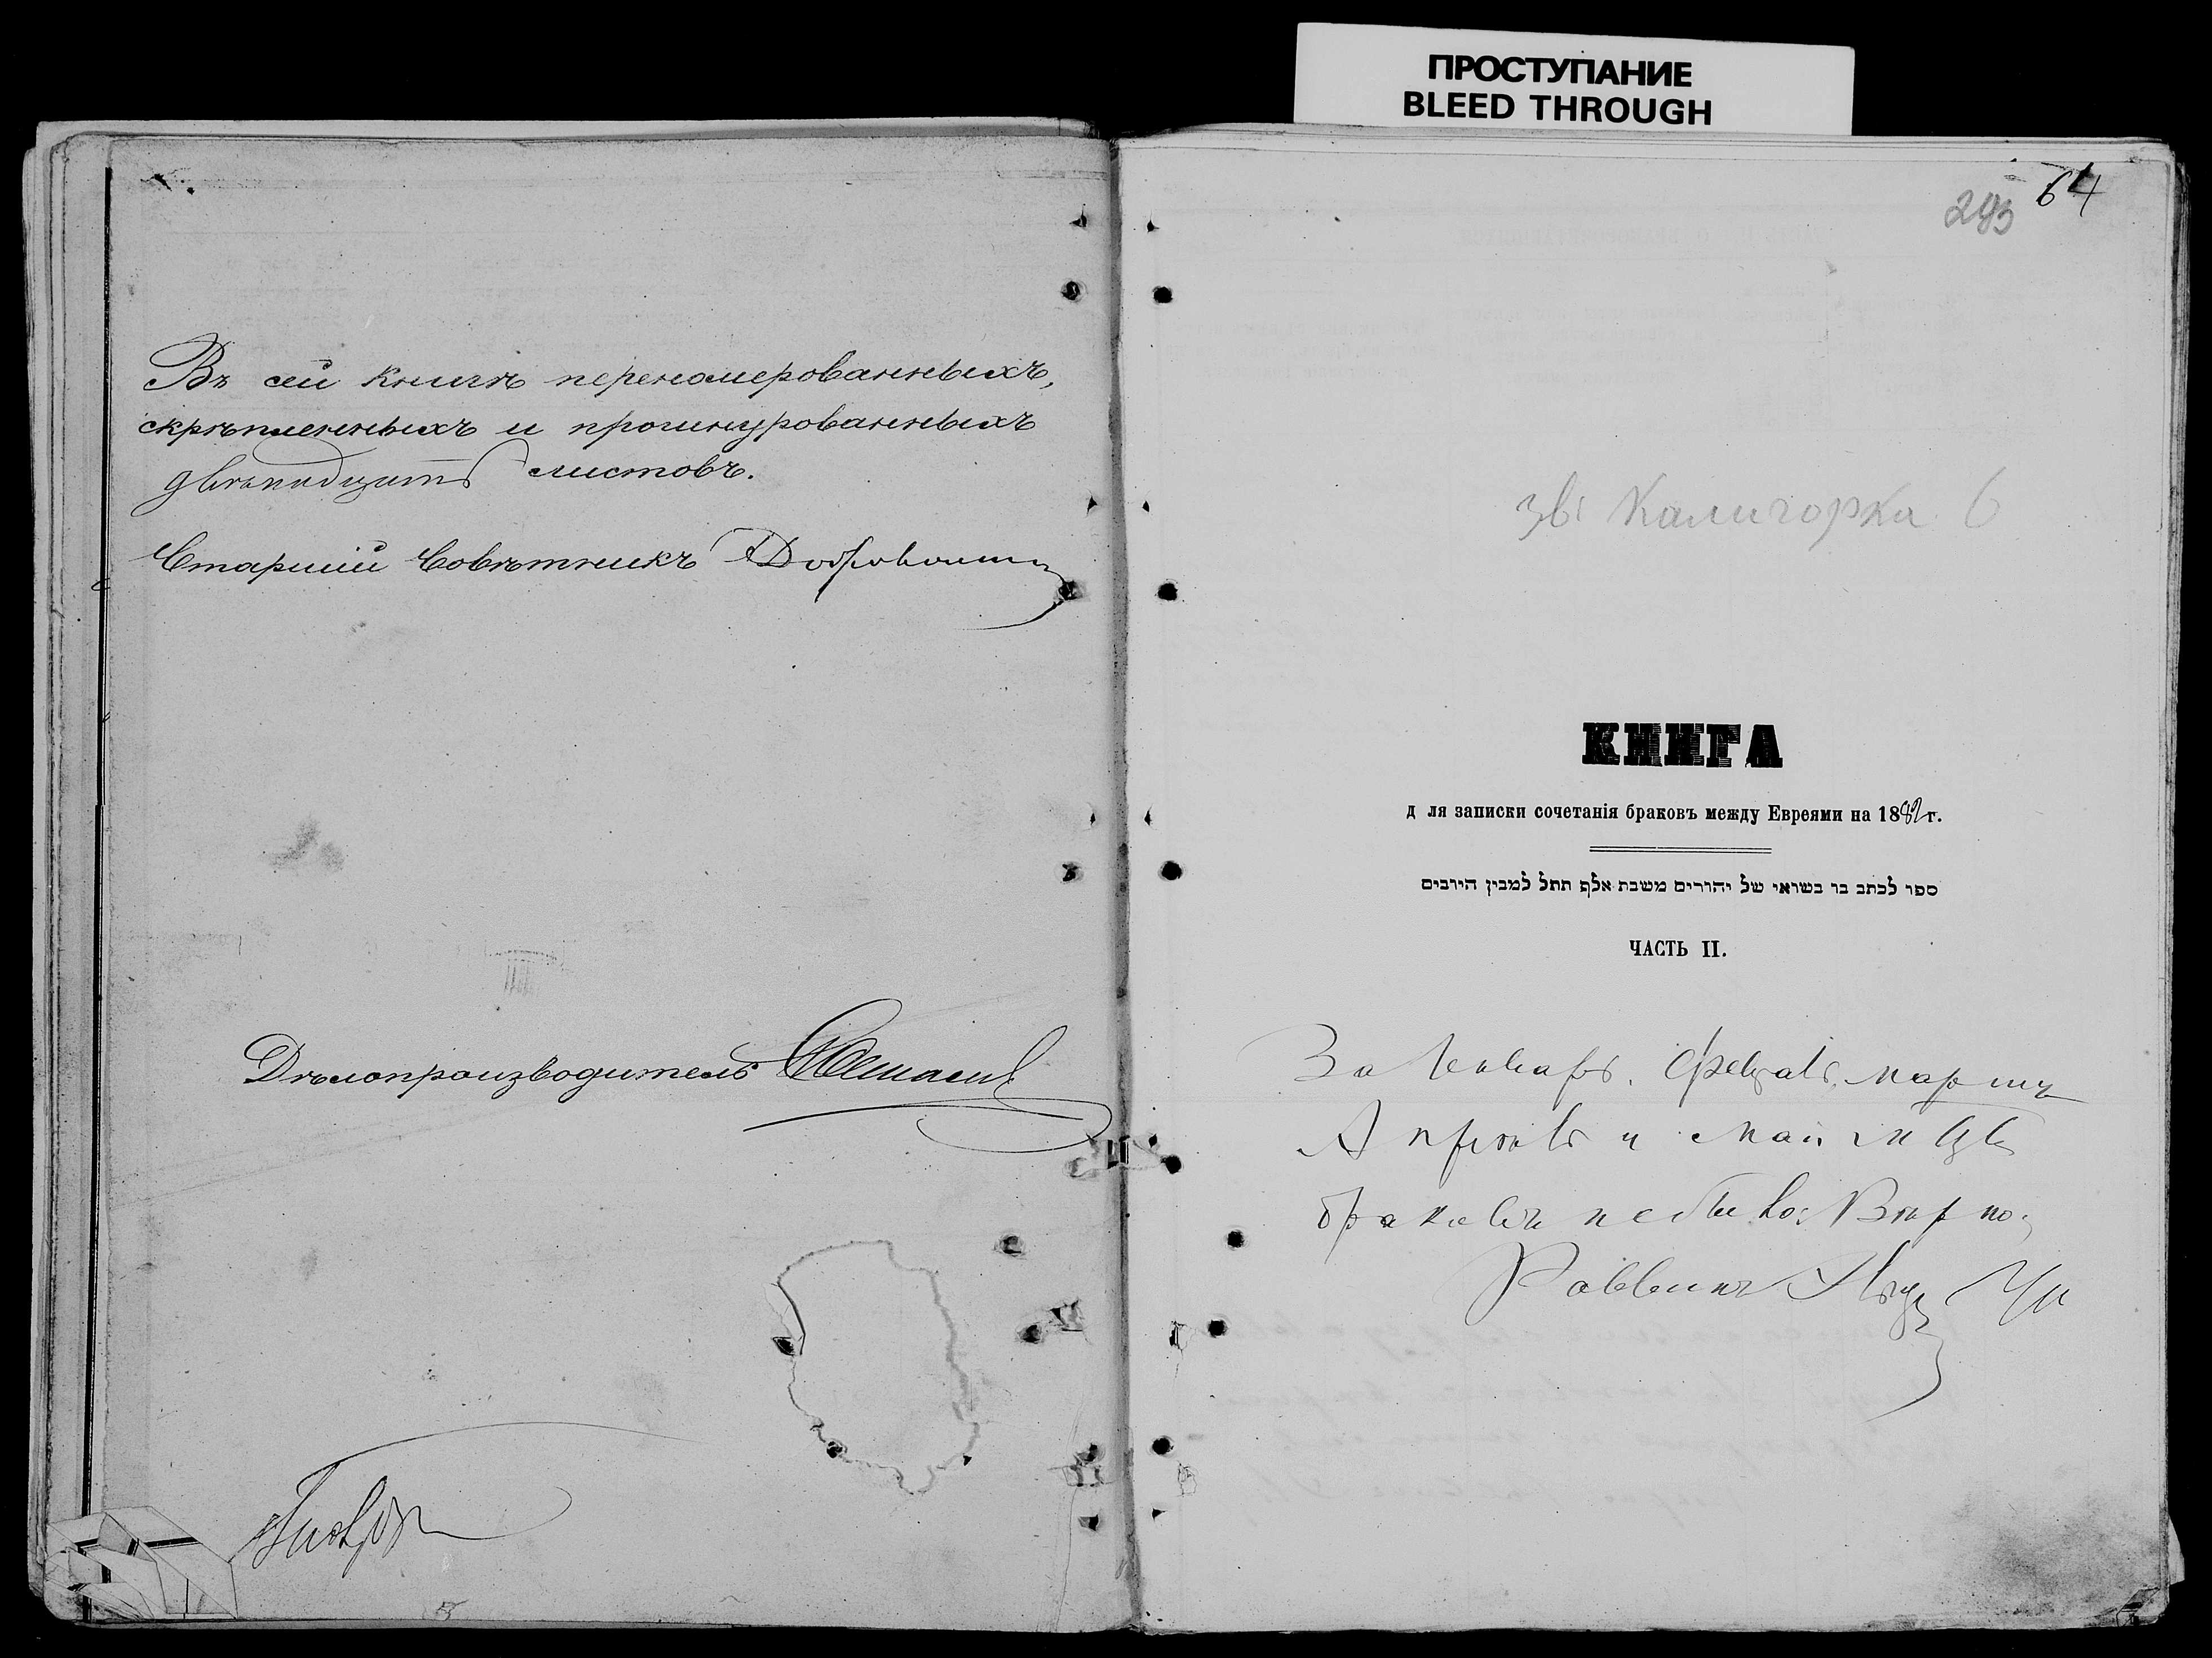 ПРОСТУПАНИЕ
BLEED THROUGH
Въ сей книгѣ переномерованныхъ,
скрѣпленныхъ и прошнурованныхъ
двѣнадцать листовъ.
Старшій Совѣтникъ
Дѣлопроизводитель
64
293
Калигорка 6
КНИГА
д ля записки сочетанія браковъ между Евреями на 1882 г.
ספר לכתב בו בשואי של יהודים משבת אלף תתל למבין היובים
ЧАСТЬ II.
За Генварь, Февраль, мартъ
Апрѣль и Май м-цы
браковъ не было: Вѣрно:
Раввинъ